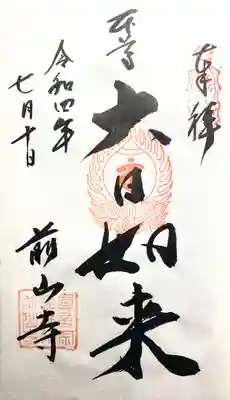 奉拝
本尊
大日如来
前山寺
令和四年
七月十日